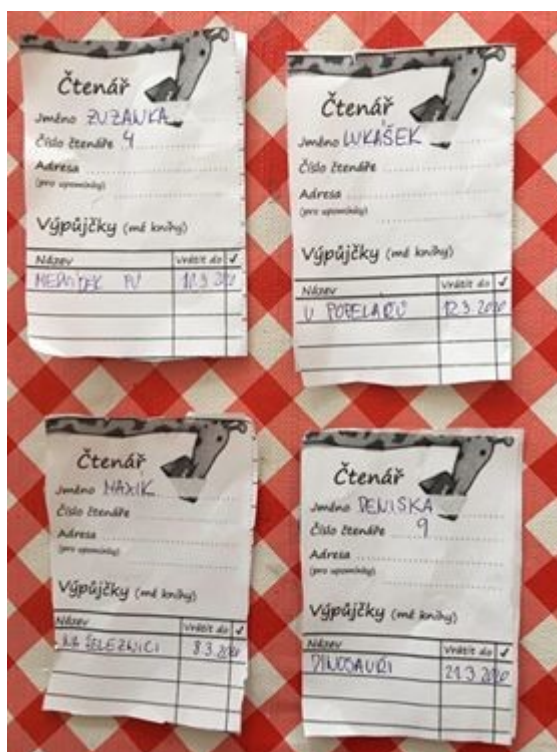 Čtenář
Jméno ZUZANKA
Číslo čtenáře 4
Adresa
(pro upomínky)
Výpůjčky (mé knihy)
Název Vrátit do ✓
MEDVÍDEK PÚ 12.3.2020
Čtenář
Jméno LUKÁŠEK
Číslo čtenáře
Adresa
(pro upomínky)
Výpůjčky (mé knihy)
Název Vrátit do ✓
U POPELÁŘŮ 12.3.2020
Čtenář
Jméno MAXÍK
Číslo čtenáře
Adresa
(pro upomínky)
Výpůjčky (mé knihy)
Název Vrátit do ✓
NA ŽELEZNICI 8.3.2020
Čtenář
Jméno DENISKA
Číslo čtenáře 9
Adresa
(pro upomínky)
Výpůjčky (mé knihy)
Název Vrátit do ✓
DINOSAUŘI 21.3.2020